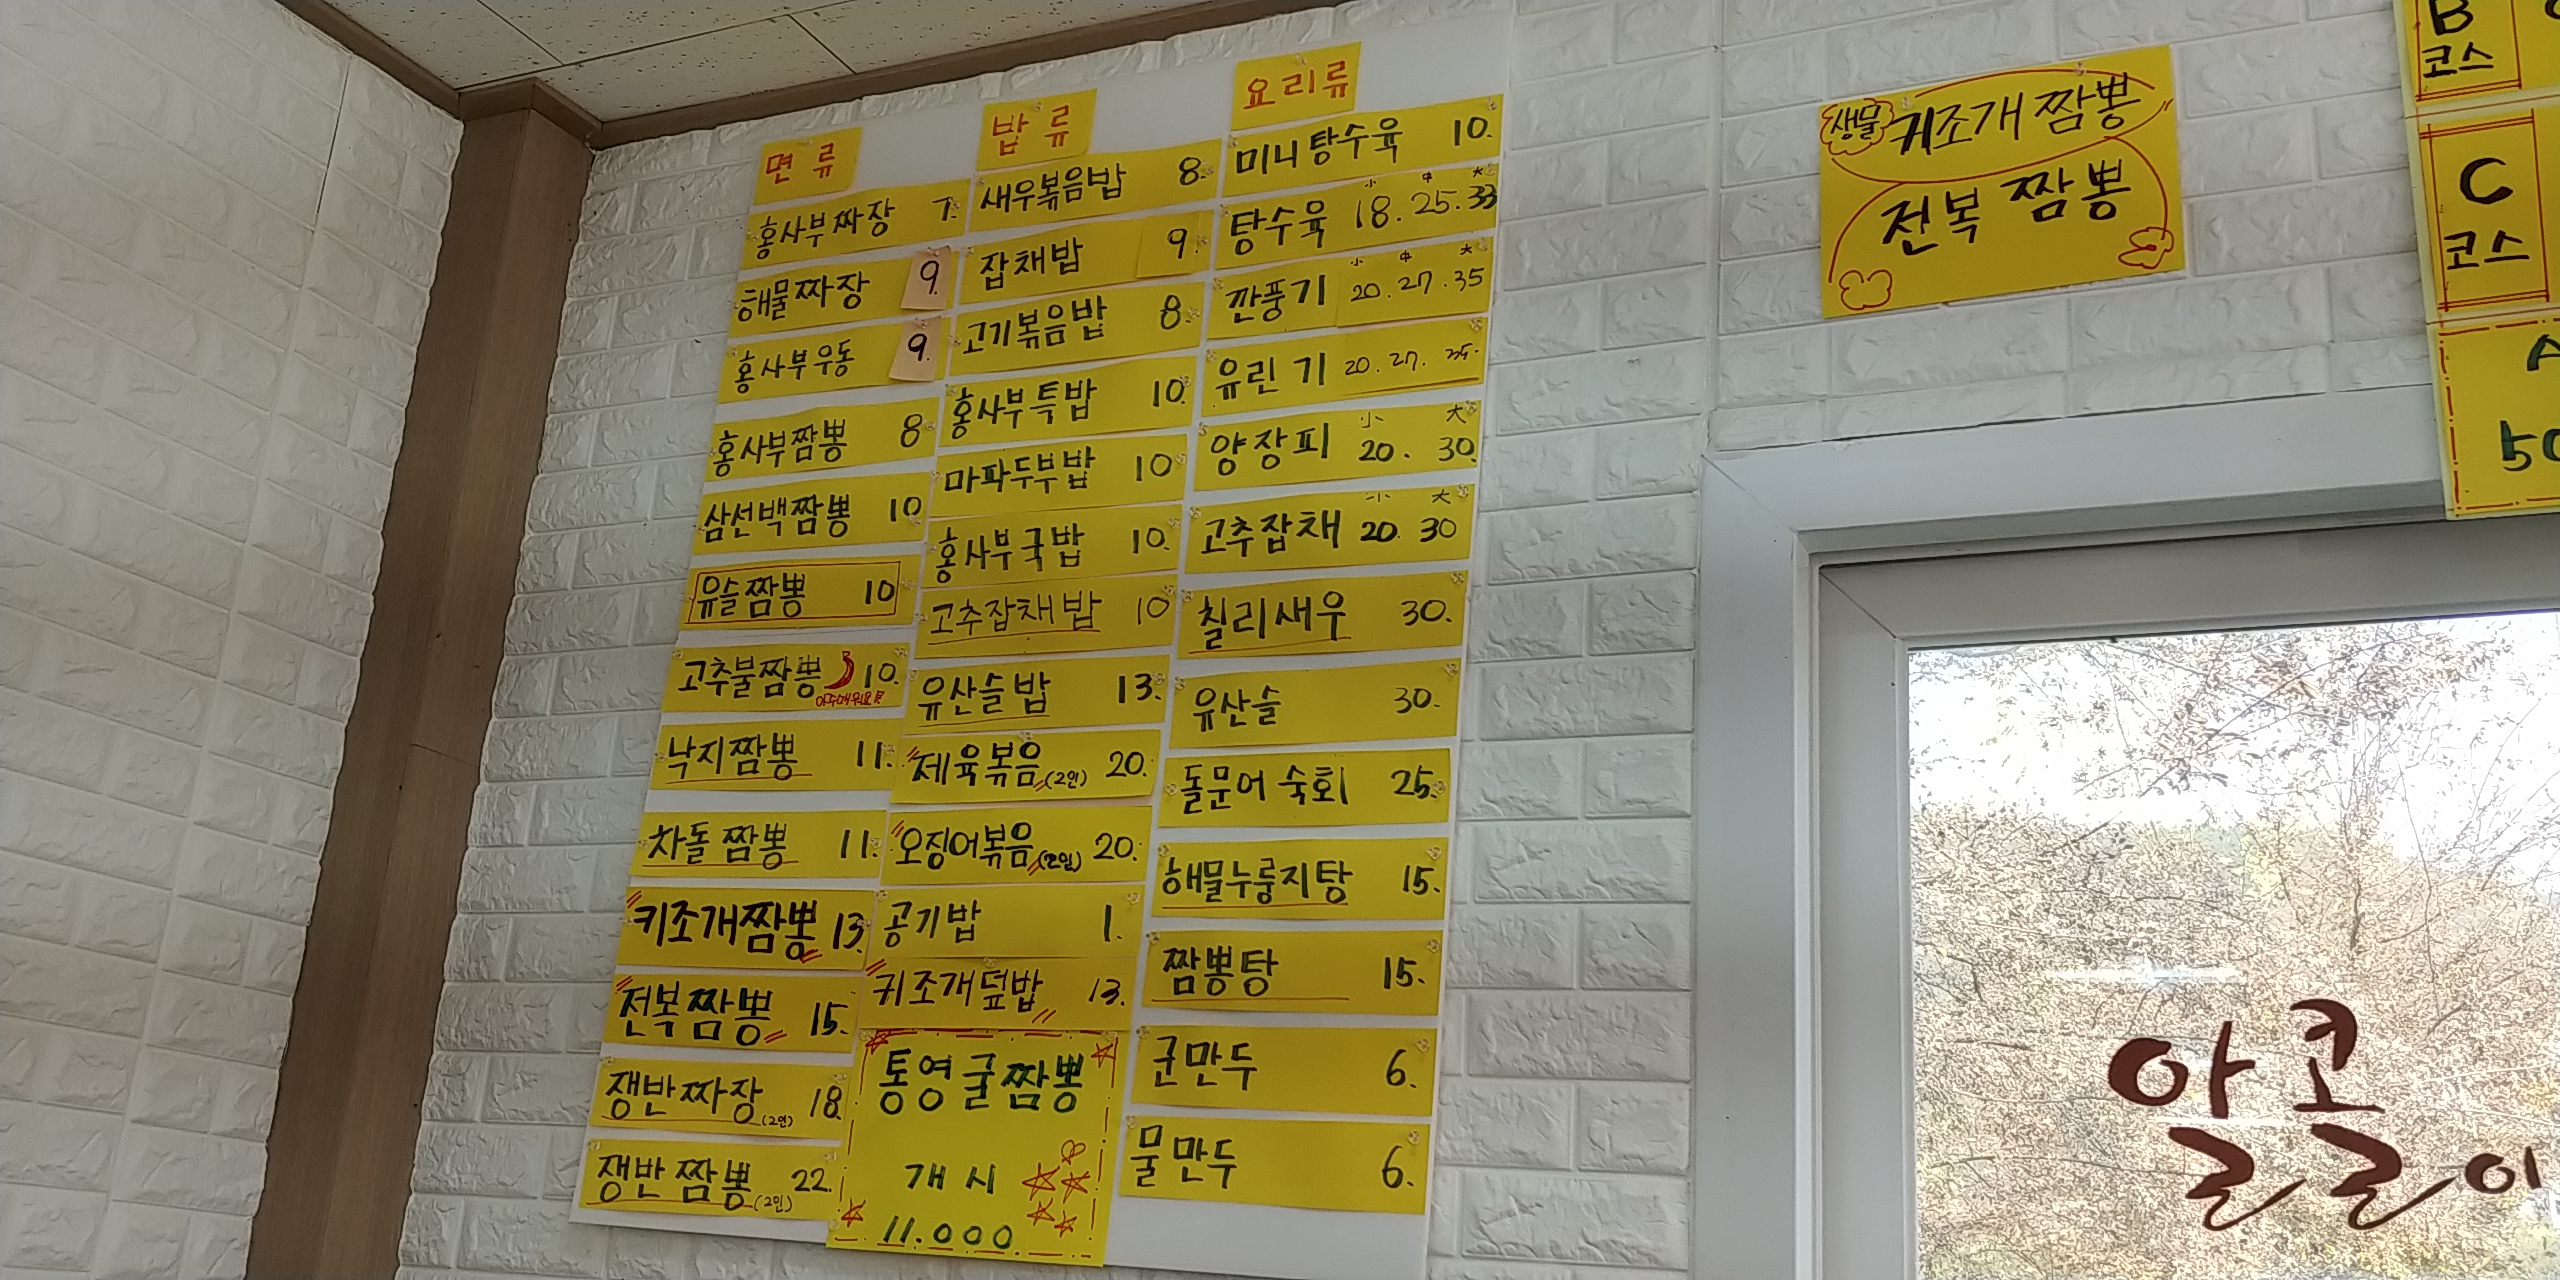 면류
홍사부짜장 7.
해물짜장 9.
홍사부우동 9.
홍사부짬뽕 8
삼선백짬뽕 10
유슬짬뽕 10
고추불짬뽕 10.
아주매워요
낙지짬뽕 11.
차돌짬뽕 11.
키조개짬뽕 13.
전복짬뽕 15.
쟁반짜장(2인) 18.
쟁반짬뽕(2인) 22.
밥류
새우볶음밥 8.
잡채밥 9.
고기볶음밥 8.
홍사부특밥 10.
마파두부밥 10
홍사부국밥 10.
고추잡채밥 10
유산슬밥 13.
제육볶음(2인) 20.
오징어볶음(2인) 20.
공기밥 1.
키조개덮밥 13.
통영굴짬뽕
개시
11.000
요리류
미니탕수육 10.
小 中 大
탕수육 18.25.33
小 中 大
깐풍기 20.27.35
유린기 20.27.35.
小 大
양장피 20. 30.
小 大
고추잡채 20. 30
칠리새우 30.
유산슬 30.
돌문어숙회 25.
해물누룽지탕 15.
짬뽕탕 15.
군만두 6.
물만두 6.
생물 키조개짬뽕
전복짬뽕
B
코스
C
코스
A
50
알코
올글이